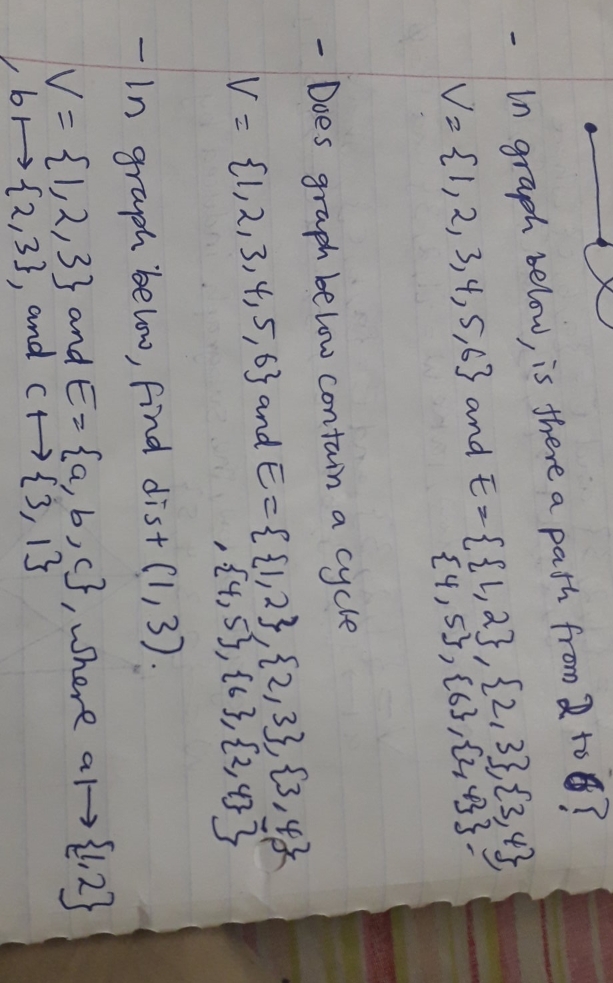 - In graph below, is there a path from 2 to 6?
V = {1, 2, 3, 4, 5, 6} and E = {{1, 2}, {2, 3}, {3, 4},
{4, 5}, {6}, {2, 4}}.
- Does graph below contain a cycle
V = {1, 2, 3, 4, 5, 6} and E = {{1, 2}, {2, 3}, {3, 4}
, {4, 5}, {6}, {2, 4}}
- In graph below, find dist (1, 3).
V = {1, 2, 3} and E = {a, b, c}, where a ↦ {1, 2}
, b ↦ {2, 3}, and c ↦ {3, 1}